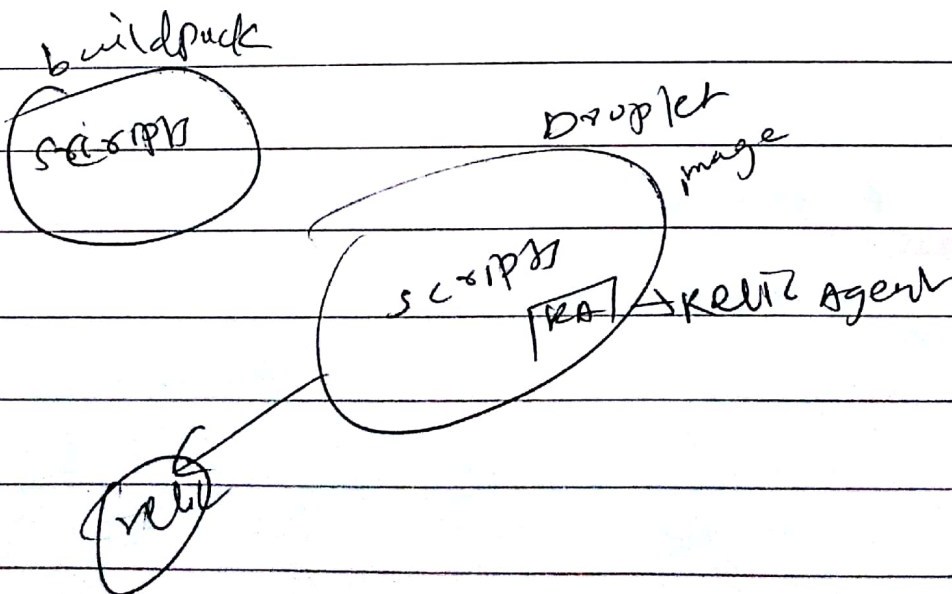 buildpack
scripts
Droplet
image
scripts
RA
Relic Agent
relic